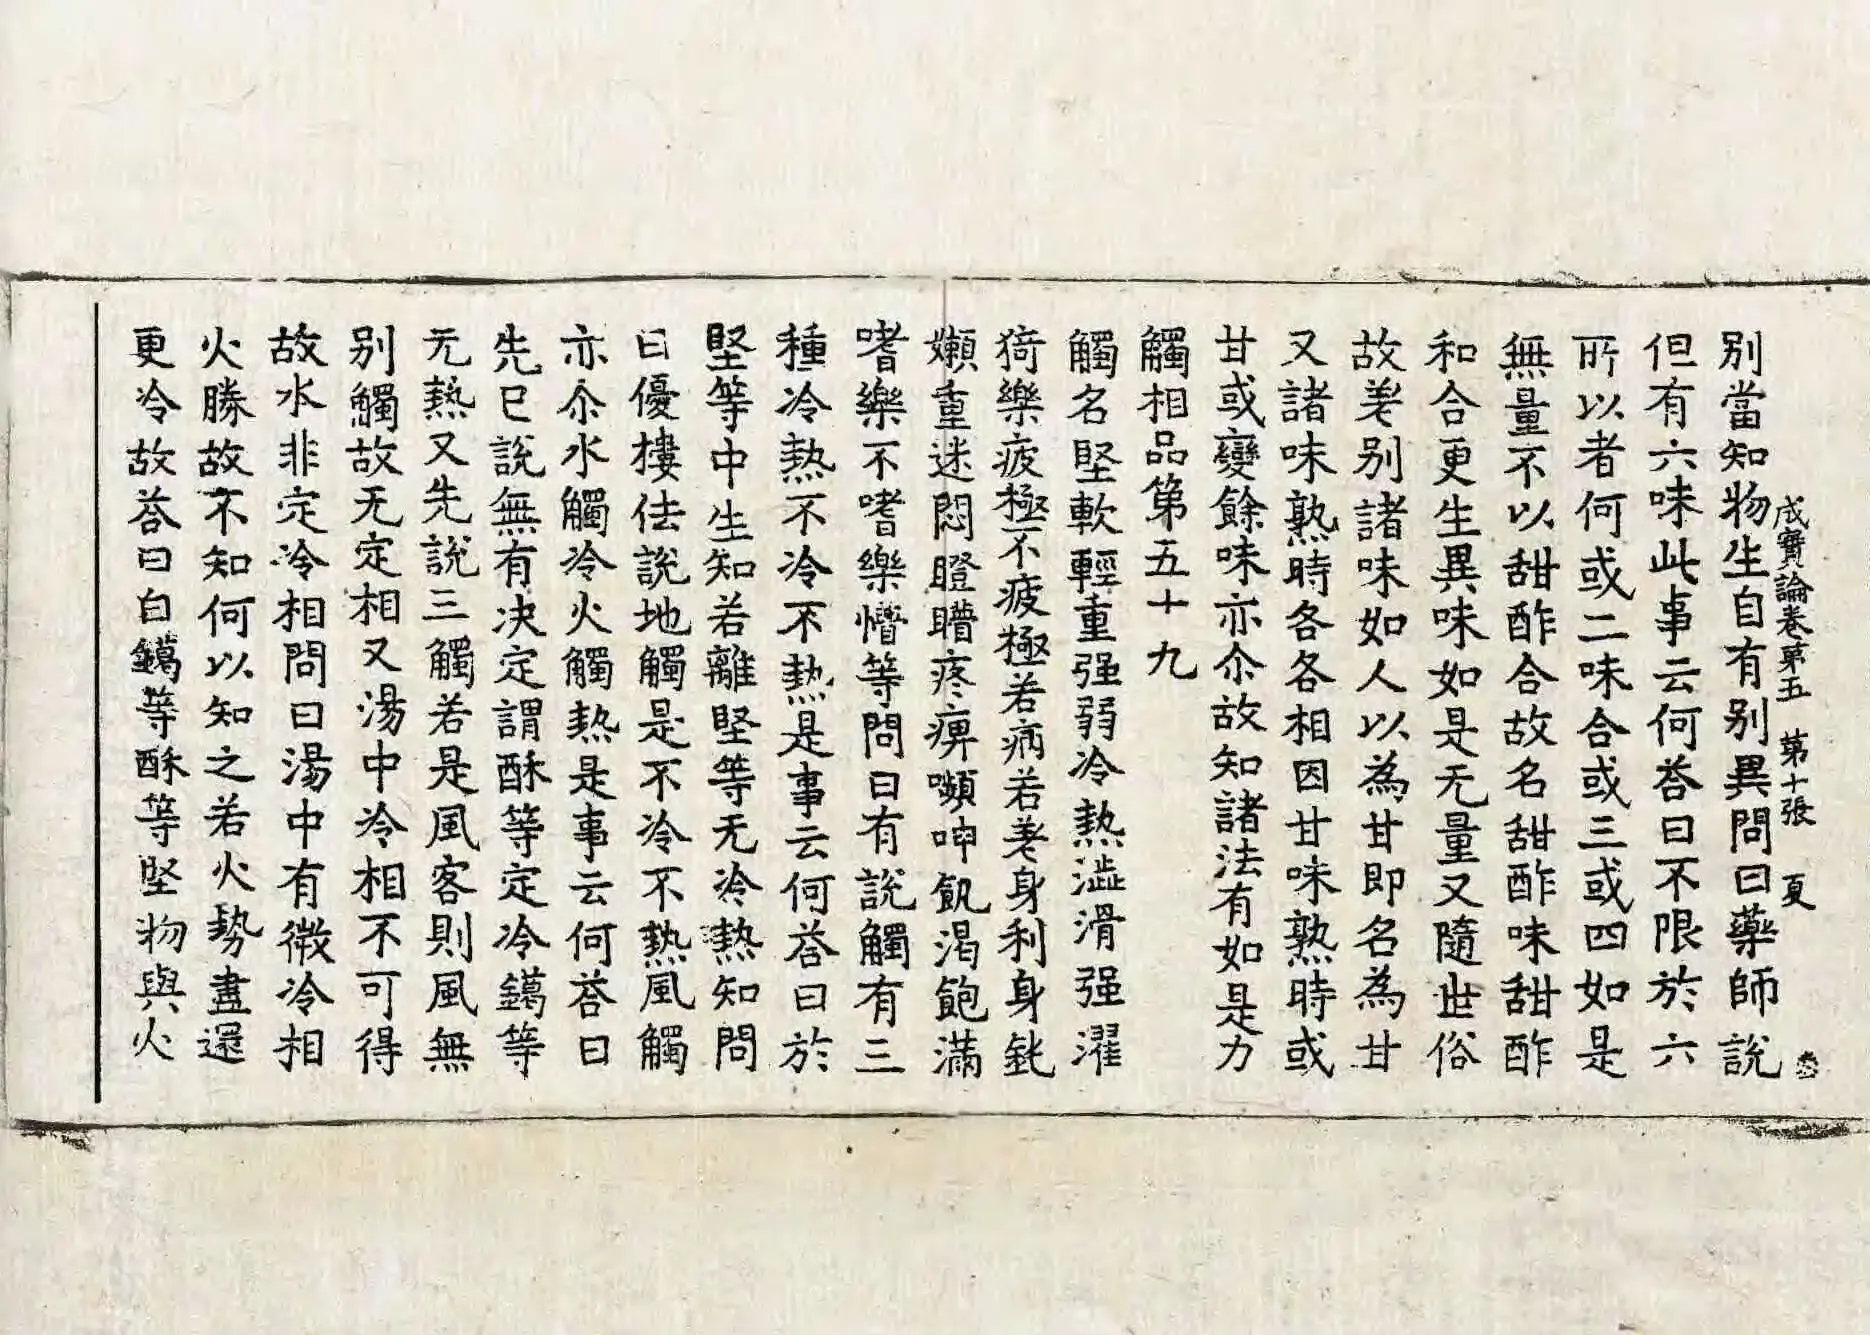 成實論卷第五 第十張 夏
別當知物生自有別異問曰藥師說
但有六味此事云何荅曰不限於六
所以者何或二味合或三或四如是
無量不以甜酢合故名甜酢味甜酢
和合更生異味如是无量又隨世俗
故差別諸味如人以為甘即名為甘
又諸味熟時各各相因甘味熟時或
甘或變餘味亦尒故知諸法有如是力
觸相品第五十九
觸名堅軟輕重强弱冷熱澁滑强濯
猗樂疲極不疲極若病若差身利身鈍
嬾重迷悶瞪矒疼痹嚬呻飢渴飽滿
嗜樂不嗜樂懵等問曰有說觸有三
種冷熱不冷不熱是事云何荅曰於
堅等中生知若離堅等无冷熱知問
曰優樓佉說地觸是不冷不熱風觸
亦尒水觸冷火觸熱是事云何荅曰
先已說無有決定謂酥等定冷鑞等
无熱又先說三觸若是風客則風無
別觸故无定相又湯中冷相不可得
故水非定冷相問曰湯中有微冷相
火勝故不知何以知之若火勢盡還
更冷故荅曰白鑞等酥等堅物與火